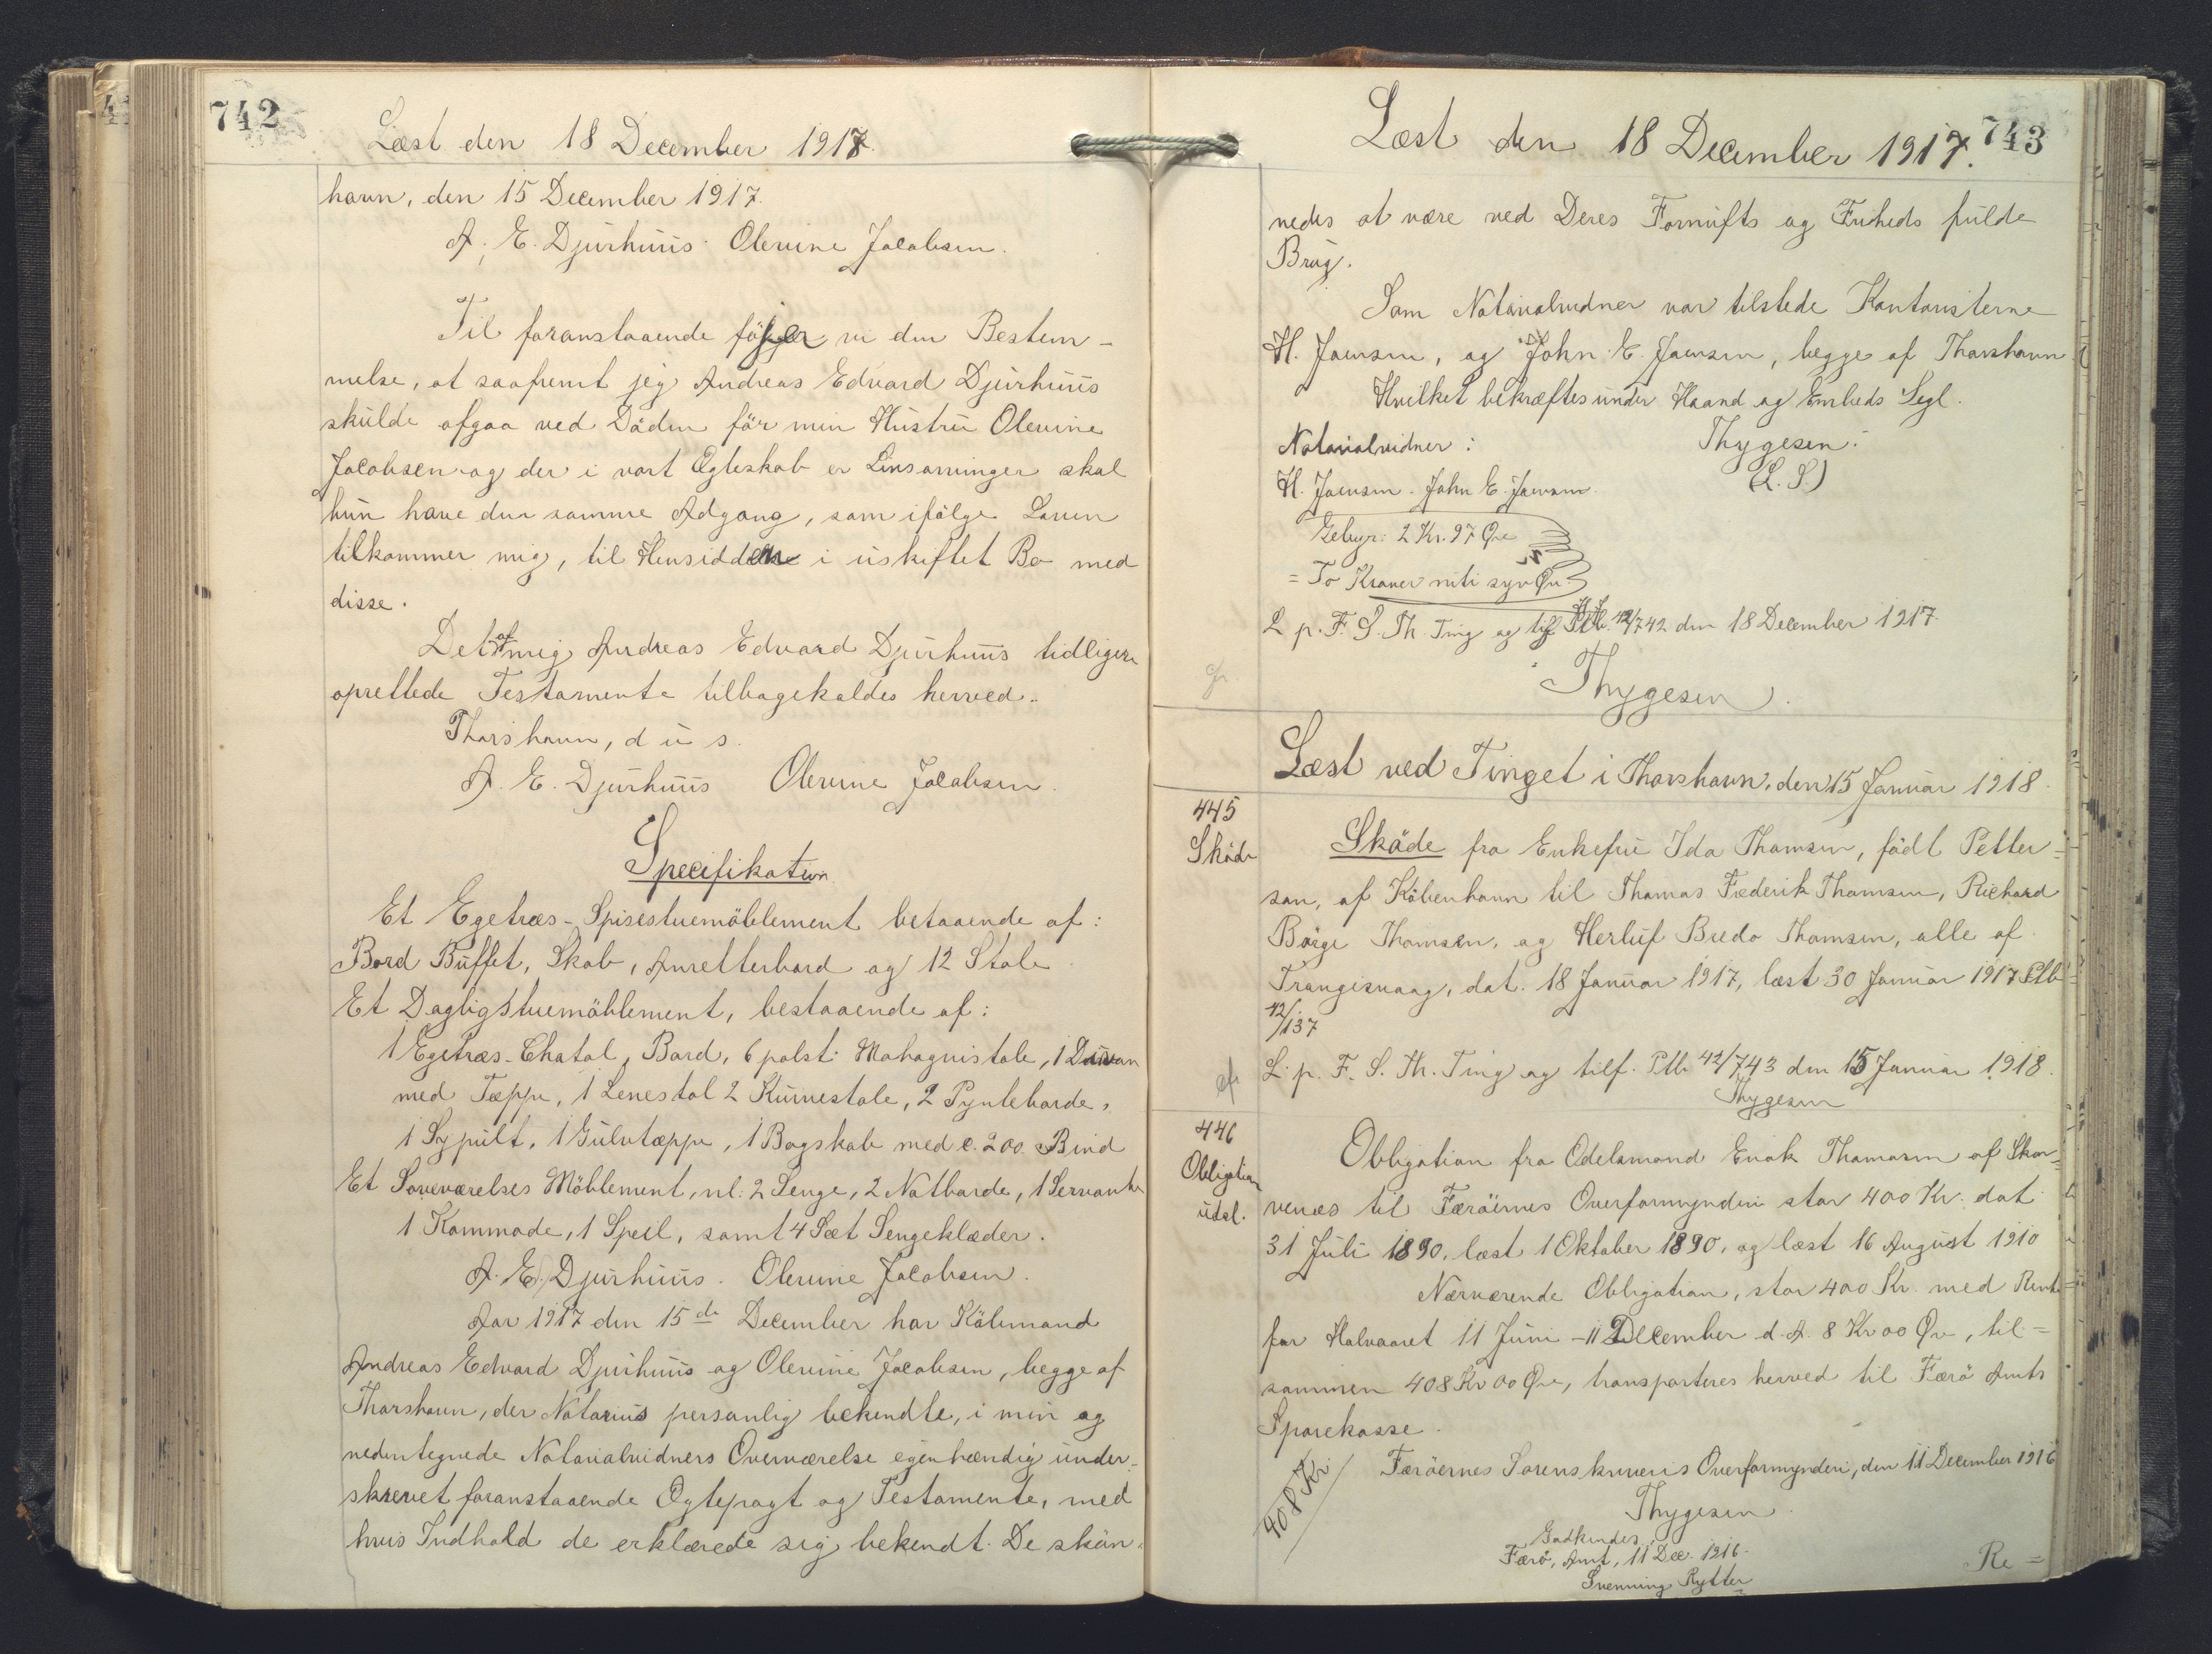 742
Læst den 18 December 1917.
havn, den 15 December 1917.
A. E. Djurhuus. Olevine Jacobsen.
Til foranstaaende föjer vi den Bestem-
melse, at saafremt jeg Andreas Edvard Djurhuus
skulde afgaa ved Döden för min Hustru Olevine
Jacobsen og der i vort Ægteskab er Livsarvinger skal
hun have den samme Adgang, som ifölge Loven
tilkommer mig, til Hensidden i uskiftet Bo med
disse.
Det af mig Andreas Edvard Djurhuus tidligere
oprettede Testamente tilbagekaldes herved.
Thorshavn, d u s.
A. E. Djurhuus Olevine Jacobsen.
Specifikation
Et Egetræs-Spisestuemöblement bstaaende af:
Bord Buffet, Skab, Anretterbord og 12 Stole
Et Dagligstuemöblement, bestaaende af:
1 Egetræs-Chatol, Bord, 6 polst. Mahognistole, 1 Divan
med Tæppe, 1 Lenestol 2 Kurvestole, 2 Pynteborde,
1 Sypult, 1 Gulvtæppe, 1 Bogskab med c. 200 Bind
Et Soveværelses Möblement, nl: 2 Senge, 2 Natborde, 1 Servante
1 Kommode, 1 Speil, samt 4 Sæt Sengeklæder.
A. E. Djurhuus. Olevine Jacobsen.
Aar 1917 den 15de December har Köbmand
Andreas Edvard Djurhuus og Olevine Jacobsen, begge af
Thorshavn, der Notarius personlig bekendte, i min og
nedentegnede Notarialvidners Overværelse egenhændig under-
skrevet foranstaaende Ægtepagt og Testamente, med
hvis Indhold de erklærede sig bekendt. De skön-
743
Læst den 18 December 1917.
nedes at være ved Deres Fornufts og Friheds fulde
Brug.
Som Notarialvidner var tilstede Kontoristerne
H. Joensen, og John E. Joensen, begge af Thorshavn
Hvilket bekræftes under Haand og Embeds Segl.
Notarialvidner: Thygesen.
H. Joensen. John E. Joensen. (L. S)
Gebyr: 2 Kr. 97 Øre
= To Kroner niti syv Øre
L. p. F. S. Th. Ting og tilf. Ptb. 42/742 den 18 December 1917.
Thygesen.
Læst ved Tinget i Thorshavn, den 15 Januar 1918.
445
Sköde
Sköde fra Enkefru Ida Thomsen, födt Petter-
son, af Köbenhavn til Thomas Frederik Thomsen, Richard
Börge Thomsen, og Herluf Bredo Thomsen, alle af
Trangisvaag, dat. 18 Januar 1917, læst 30 Januar 1917 Ptb
42/137
L. p. F. S. Th. Ting og tilf. Ptb 42/743 den 15 Januar 1918.
Thygesen
446
Obligation
udsl.
Obligation fra Odelsmand Enok Thomasen af Skor-
venæs til Færöernes Overformynderi stor 400 Kr. dat
31 Juli 1890, læst 1 Oktober 1890, og læst 16 August 1910
Nærværende Obligation, stor 400 Kr. med Rente
for Halvaaret 11 Juni - 11 December d. A. 8 Kr 00 Øre, til-
sammen 408 Kr 00 Øre, transporteres herved til Færö Amts
Sparekasse.
408 Kr
Færöernes Sorenskriveris Overformynderi, den 11 December 1916
Thygesen
Godkendes,
Færö, Amt, 11 Dec. 1916.
Svenning Rytter
Re =